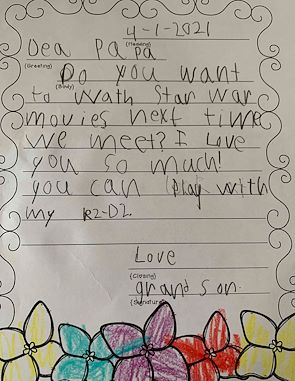 4-1-2021
(Heading)
Dea Pa Pa
(Greeting)
Do you want
(Body)
to wath Star War
movies next time
we meet? I Love
you so much!
you can play with
my R2-D2.
Love
(Closing)
grand son.
(Signature)